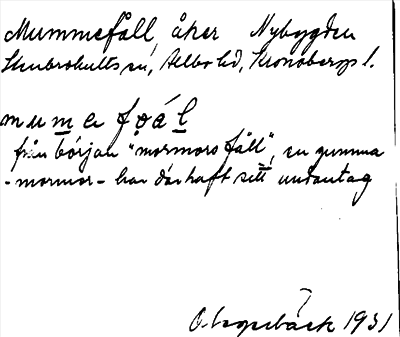 Mummefåll, åker Nybygden
Stenbrohults sn, Allbo hd, Kronobergs l.
mumefoál
från början "mormors fåll", en gumma
- mormor - har där haft sitt undantag
1931